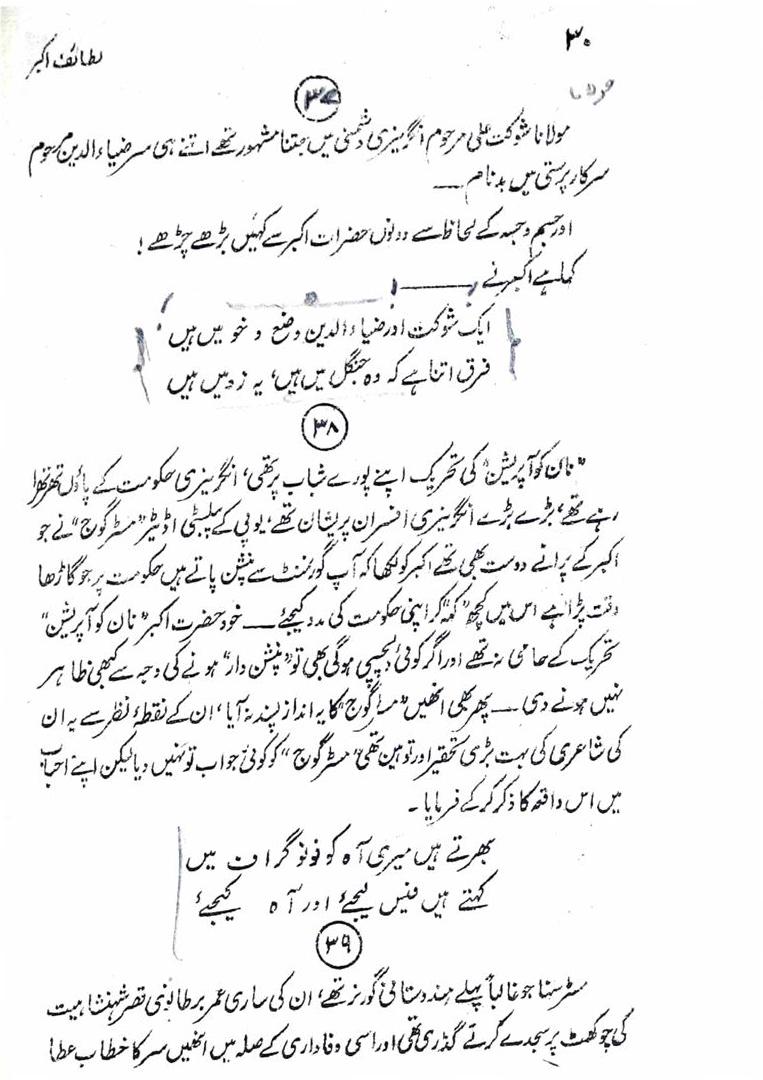 ۳۰
لطائف اکبر
مولانا
۳۷
مولانا شوکت علی مرحوم انگریزی دشمنی میں جتنا مشہور تھے اتنے ہی سر ضیاء الدین مرحوم
سرکار پرستی میں بدنام ــــ
اور جسم وجسہ کے لحاظ سے دونوں حضرات اکبر سے کہیں بڑھے چڑھے !
کہا ہے اکبر نے ــــــــ !
ایک شوکت اور ضیاء الدین وضع و خو میں ہیں
فرق اتنا ہے کہ وہ جنگل میں ہیں، یہ زد میں ہیں
۳۸
"نان کو آپریشن" کی تحریک اپنے پورے شباب پر تھی، انگریزی حکومت کے پاؤں تھرتھرا
رہے تھے، بڑے بڑے انگریزی افسران پریشان تھے، یو پی کے پبلسٹی اڈیٹر "مسٹر گوج" نے جو
اکبر کے پرانے دوست بھی تھے اکبر کو لکھا کہ آپ گورنمنٹ سے پنشن پاتے ہیں حکومت پر جو گاڑھا
وقت پڑا ہے اس میں کچھ "کہہ" کر اپنی حکومت کی مدد کیجئے ــــ خود حضرت اکبر "نان کو آپریشن"
تحریک کے حامی نہ تھے اور اگر کوئی دلچسپی ہوگی بھی تو "پنشن دار" ہونے کی وجہ سے کبھی ظاہر
نہیں ہونے دی ــــ پھر بھی انھیں "مسٹر گوج" کا یہ انداز پسند نہ آیا، ان کے نقطۂ نظر سے یہ ان
کی شاعری کی بہت بڑی تحقیر اور توہین تھی "مسٹر گوج" کو کوئی جواب تو نہیں دیا لیکن اپنے احباب
میں اس واقعہ کا ذکر کر کے فرمایا ۔
بھرتے ہیں میری آہ کو فونو گراف میں
کہتے ہیں فیس لیجئے اور آہ کیجئے
۳۹
سٹر سنہا جو غالباً پہلے ہندوستانی گورنر تھے، ان کی ساری عمر برطانوی قصر شہنشاہیت
کی چوکھٹ پر سجدے کرتے گذری تھی اور اسی وفاداری کے صلہ میں انھیں سر کا خطاب عطا